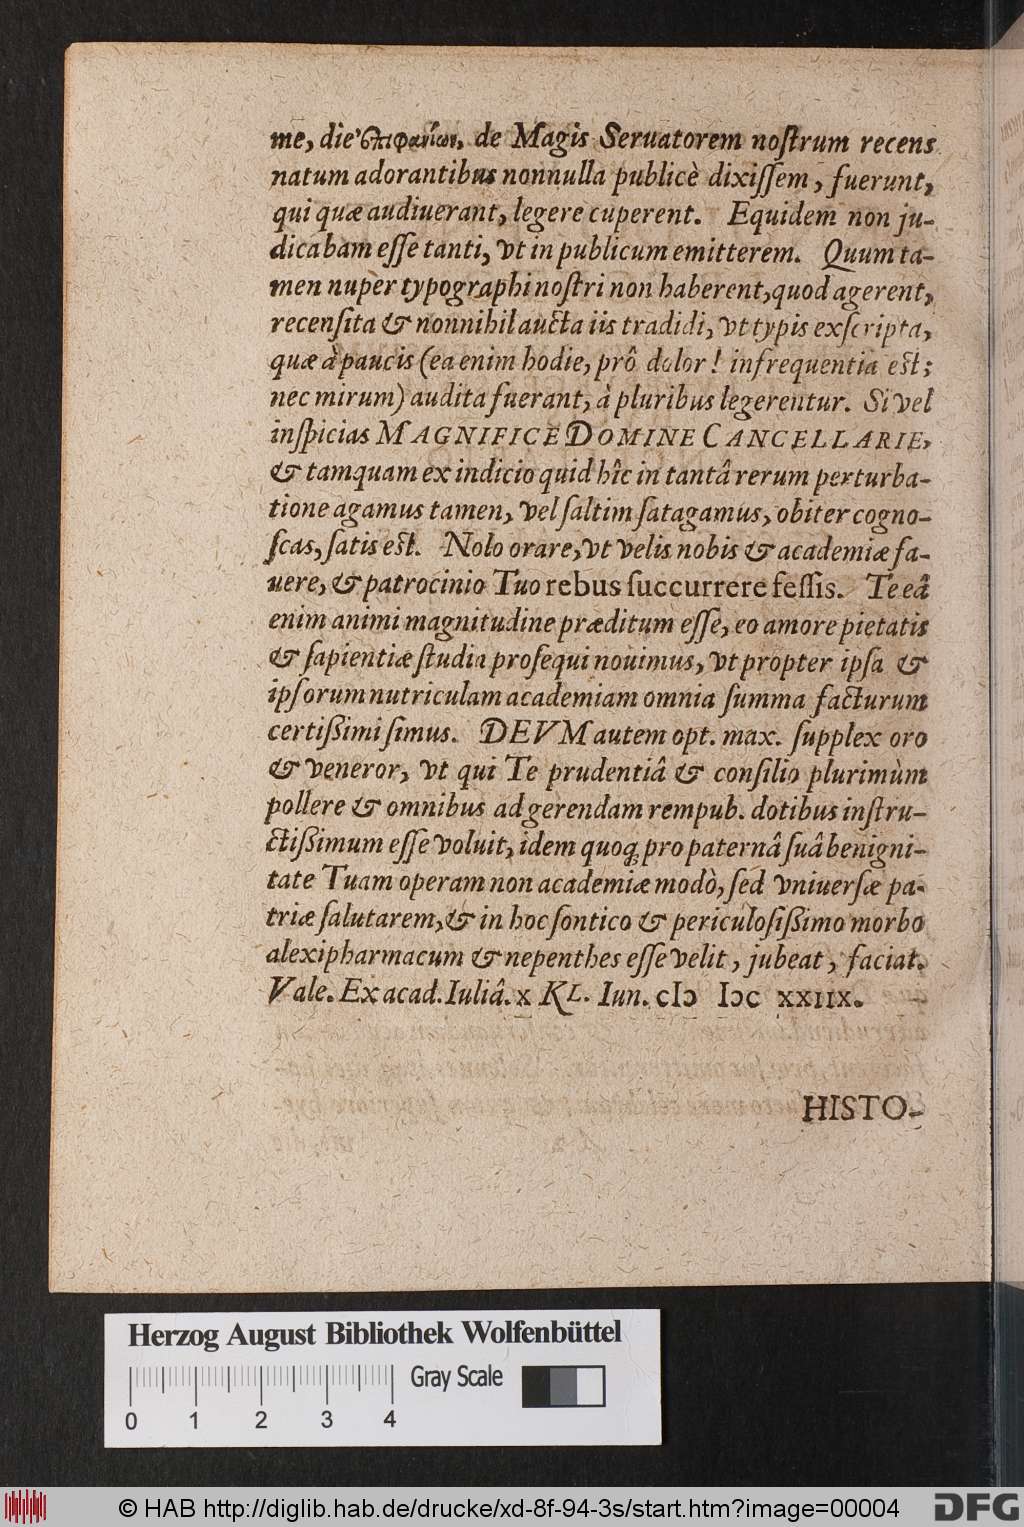 me, die ἐπιφανίων, de Magis Seruatorem noſtrum recens
natum adorantibus nonnulla publicè dixiſſem, fuerunt,
qui quæ audiuerant, legere cuperent. Equidem non ju-
dicabam eſſe tanti, vt in publicum emitterem. Quum ta-
men nupèr typographi noſtri non haberent, quod agerent,
recenſita & nonnihil aucta iis tradidi, vt typis exſcripta,
quæ à paucis (ea enim hodie, prô dolor! infrequentia est;
nec mirum) audita fuerant, à pluribus legerentur. Si vel
inſpicias MAGNIFICE DOMINE CANCELLARIE,
& tamquam ex indicio quid hîc in tantâ rerum perturba-
tione agamus tamen, vel ſaltim ſatagamus, obiter cogno-
ſcas, ſatis est. Nolo orare, vt velis nobis & academiæ fa-
uere, & patrocinio Tuo rebus ſuccurrere feſſis. Te eâ
enim animi magnitudine præditum eſſe, eo amore pietatis
& ſapientiæ ſtudia proſequi nouimus, vt propter ipſa &
ipſorum nutriculam academiam omnia ſumma facturum
certißimi ſimus. DEVM autem opt. max. ſupplex oro
& veneror, vt qui Te prudentiâ & conſilio plurimùm
pollere & omnibus ad gerendam rempub. dotibus inſtru-
ctißimum eſſe voluit, idem quoq; pro paternâ ſuâ benigni-
tate Tuam operam non academiæ modò, ſed vniuerſæ pa-
triæ ſalutarem, & in hoc ſontico & periculoſißimo morbo
alexipharmacum & nepenthes eſſe velit, jubeat, faciat.
Vale. Ex acad. Iuliâ. x KL. Iun. cIↄ Iↄc xxIIx.
HISTO-
Herzog August Bibliothek Wolfenbüttel
Gray Scale
0 1 2 3 4
© HAB http://diglib.hab.de/drucke/xd-8f-94-3s/start.htm?image=00004
DFG